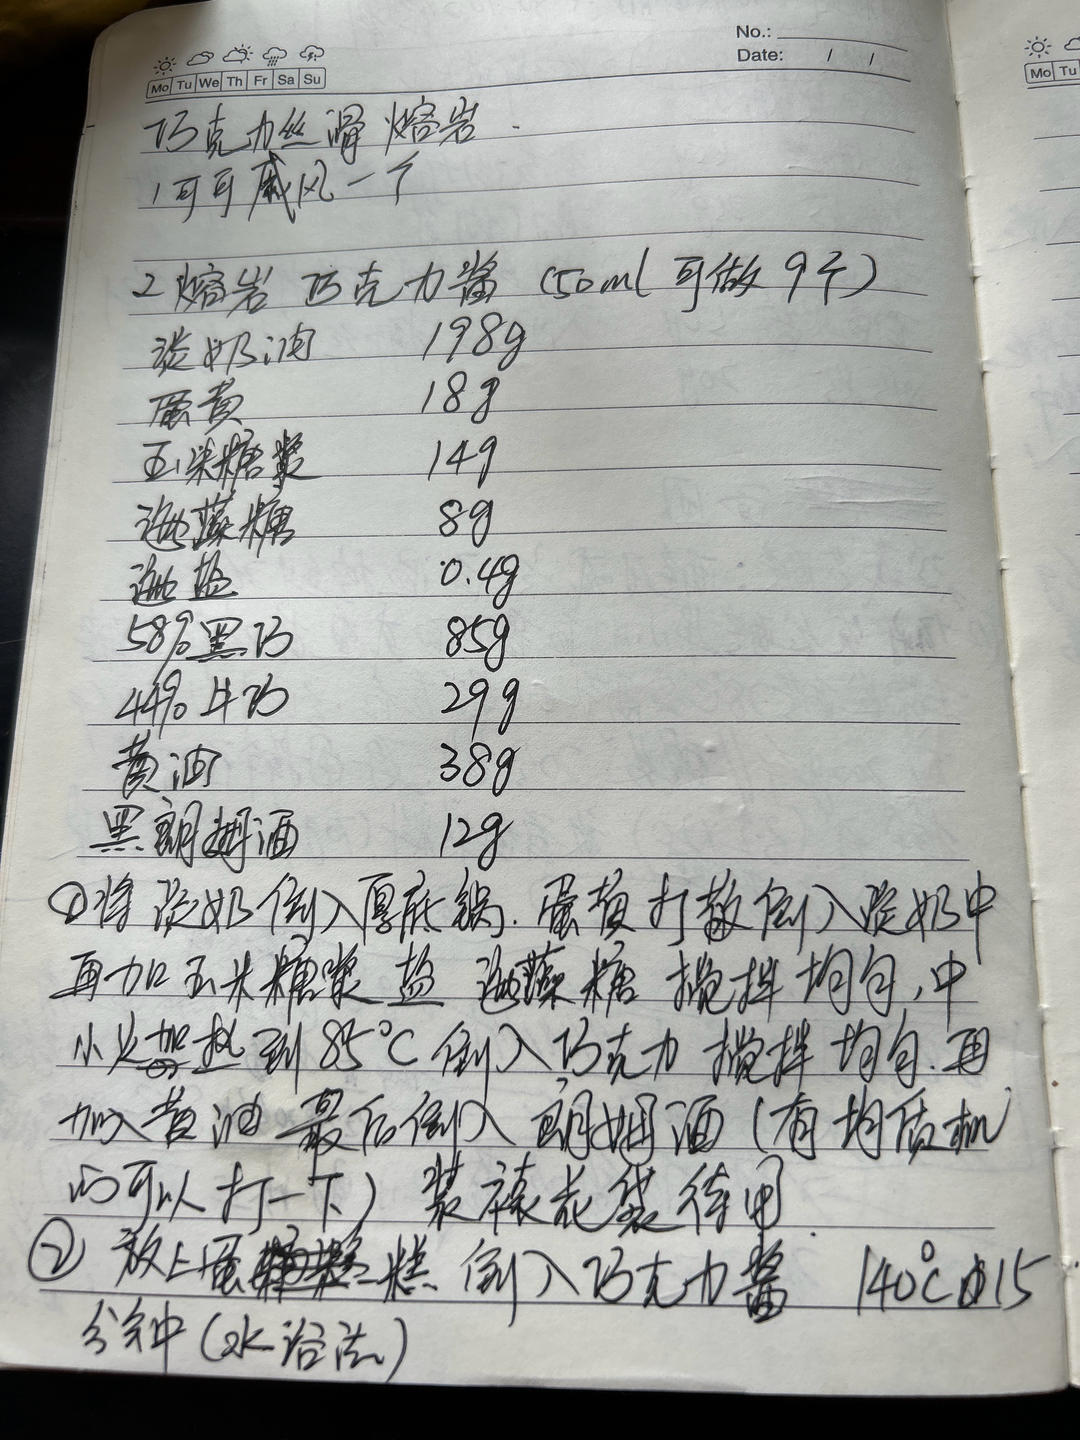 No.:
Date: / /
Mo Tu We Th Fr Sa Su
Mo Tu
巧克力丝滑熔岩
1 可可戚风一个
2 熔岩巧克力酱 (50ml 可做9个)
淡奶油 198g
蛋黄 18g
玉米糖浆 14g
海藻糖 8g
海盐 0.4g
58%黑巧 85g
44%牛巧 29g
黄油 38g
黑朗姆酒 12g
①将淡奶倒入厚底锅.蛋黄打散倒入淡奶中
再加玉米糖浆 盐 海藻糖 搅拌均匀,中
小火加热到85°C倒入巧克力搅拌均匀.再
加入黄油 最后倒入朗姆酒(有均质机
的可以打一下) 装裱花袋待用
② 放上蛋糕 倒入巧克力酱 140°C 15
分钟(水浴法)